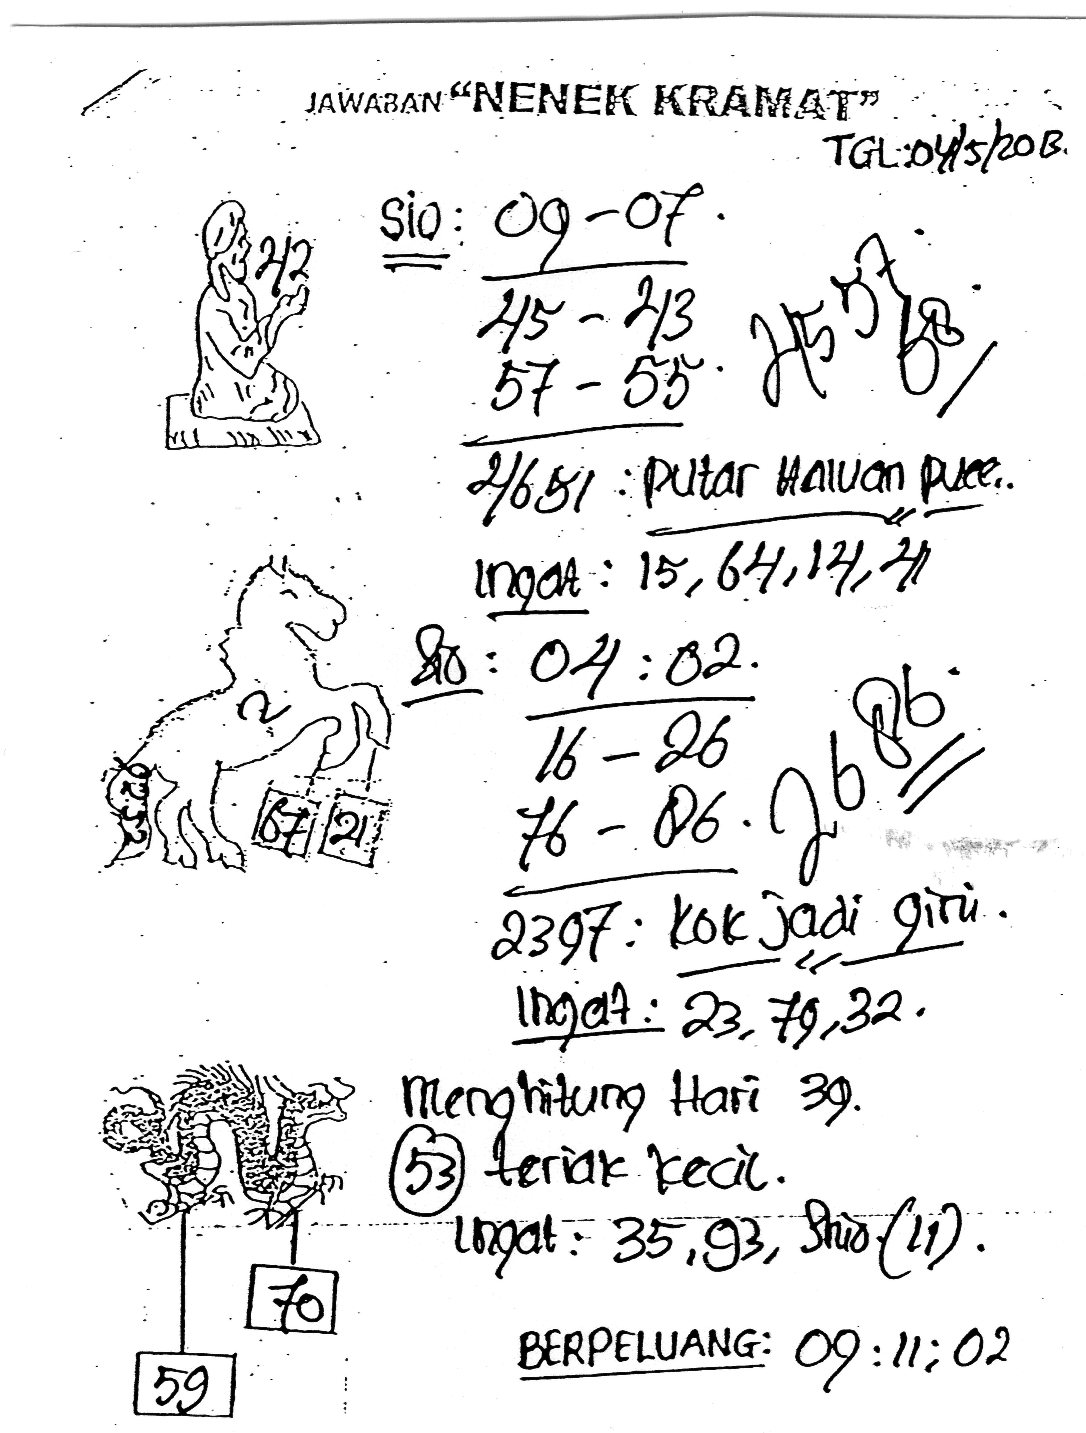 JAWABAN "NENEK KRAMAT"
TGL:04/5/20B.
42
Sio: 09-07.
45-43
57-55.
45 57 68
4651: Putar Haluan Puce..
Ingat: 15, 64, 14, 41
2
67 21
Sio: 04:02.
16-26
76-86.
26 86
2397: Kok jadi gitu.
Ingat: 23, 79, 32.
Menghitung Hari 39.
53 teriak kecil.
Ingat: 35, 93, Shio (11).
70
59
BERPELUANG: 09:11; 02